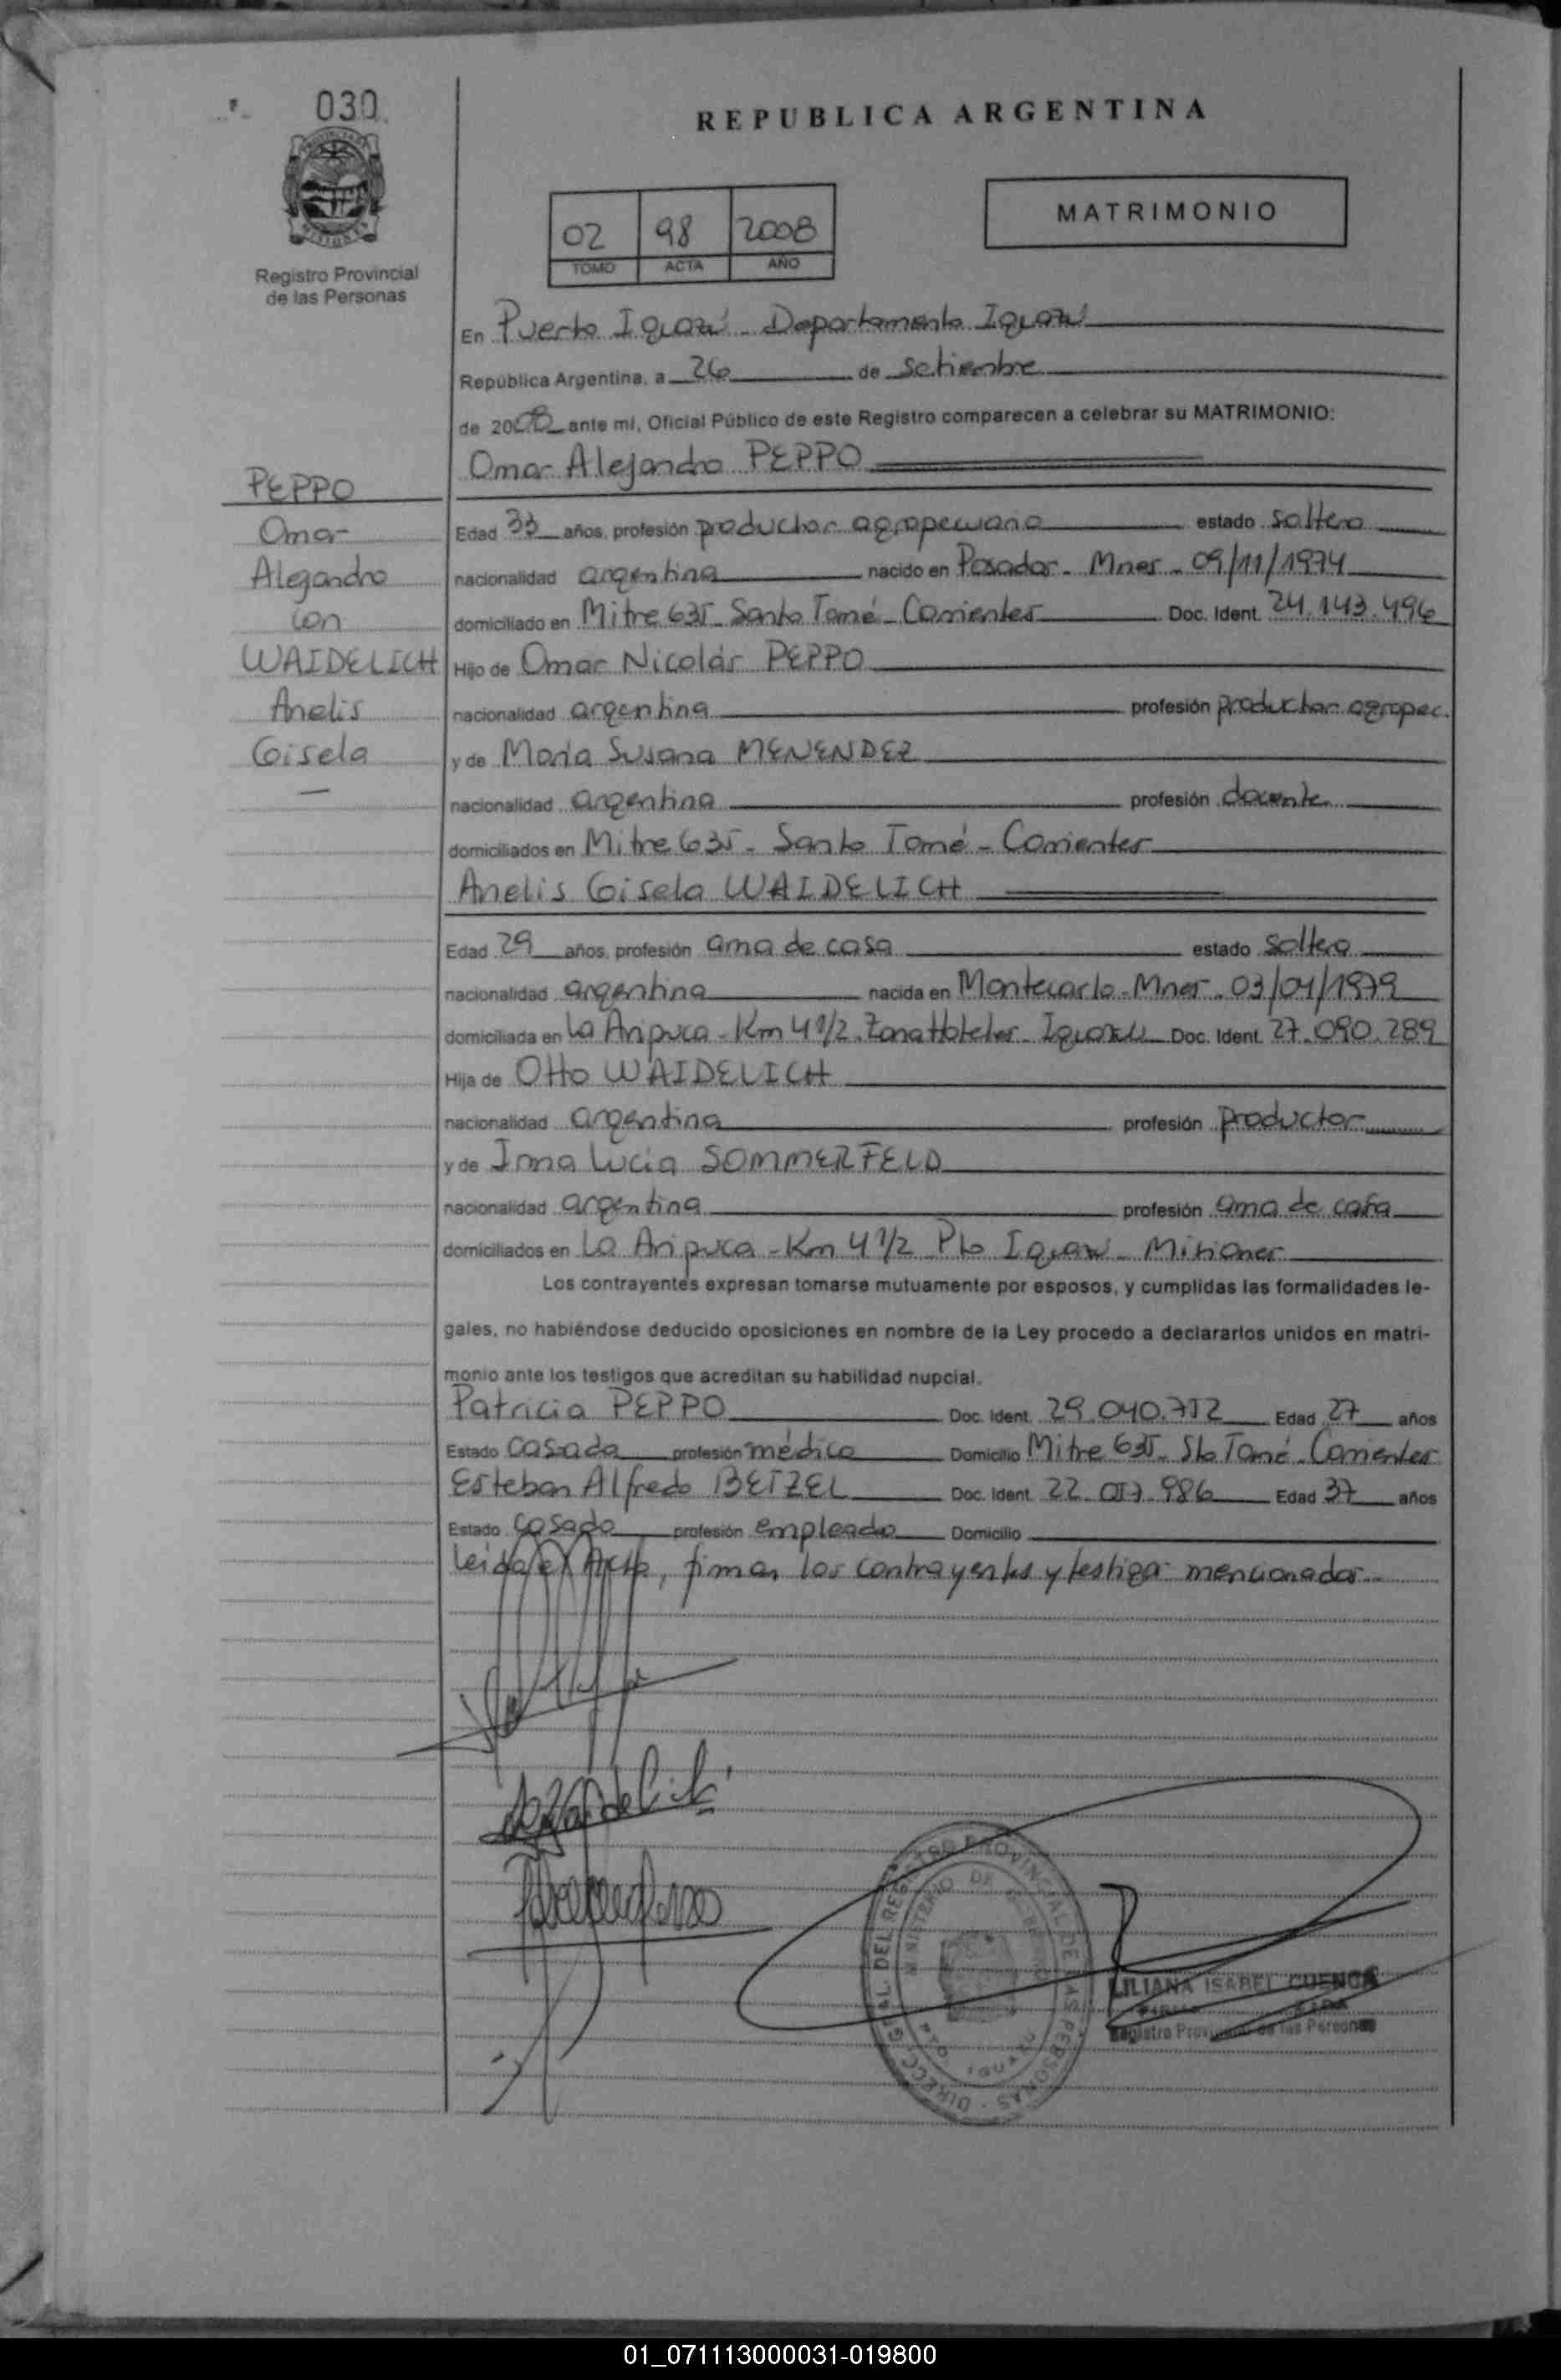 030
REPUBLICA ARGENTINA
MATRIMONIO
02 98 2008
TOMO ACTA AÑO
Registro Provincial
de las Personas
En Puerto Iguazú - Departamento Iguazú
República Argentina, a 26 de setiembre
de 2008 ante mi, Oficial Público de este Registro comparecen a celebrar su MATRIMONIO:
Omar Alejandro PEPPO
PEPPO
Omar
Alejandro
con
WAIDELICH
Anelis
Gisela
Edad 33 años, profesión productor agropecuario estado soltero
nacionalidad argentina nacido en Posadas - Mnes - 09/11/1974
domiciliado en Mitre 635 - Santo Tomé - Corrientes Doc. Ident. 24.143.496
Hijo de Omar Nicolás PEPPO
nacionalidad argentina profesión productor agropec.
y de Maria Susana MENENDEZ
nacionalidad argentina profesión docente
domiciliados en Mitre 635 - Santo Tomé - Corrientes
Anelis Gisela WAIDELICH
Edad 29 años, profesión ama de casa estado soltera
nacionalidad argentina nacida en Montecarlo - Mnes - 03/04/1979
domiciliada en La Aripuca - Km 4 1/2. Zona Hoteles - Iguazú Doc. Ident. 27.090.289
Hija de Otto WAIDELICH
nacionalidad argentina profesión productor
y de Irma Lucia SOMMERFELD
nacionalidad argentina profesión ama de casa
domiciliados en La Aripuca - Km 4 1/2 Pto Iguazú - Misiones
Los contrayentes expresan tomarse mutuamente por esposos, y cumplidas las formalidades le-
gales, no habiéndose deducido oposiciones en nombre de la Ley procedo a declararlos unidos en matri-
monio ante los testigos que acreditan su habilidad nupcial.
Patricia PEPPO Doc. Ident. 29.040.752 Edad 27 años
Estado casada profesión médica Domicilio Mitre 635 - Sto Tomé - Corrientes
Esteban Alfredo BETZEL Doc. Ident. 22.057.986 Edad 37 años
Estado casado profesión empleado Domicilio
Leida el Acta, firman los contrayentes y testigos mencionados
LILIANA ISABEL CUENCA
Registro Provincial de las Personas
01_071113000031-019800